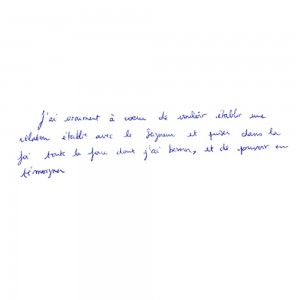 J'ai vraiment à coeur de vouloir établir une
relation établie avec le Seigneur et puiser dans la
foi toute la force dont j'ai besoin, et de pouvoir en
témoigner